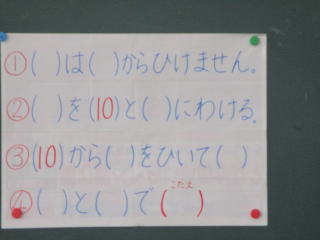 ①( )は( )からひけません。
②( )を(10)と( )にわける。
③(10)から( )をひいて( )
こたえ
④( )と( )で( )